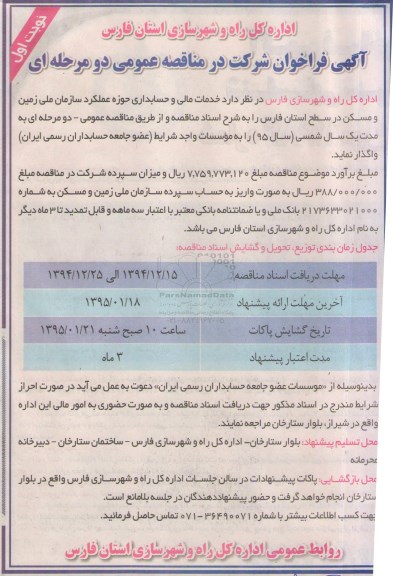 نوبت اول
اداره کل راه و شهرسازی استان فارس
آگهی فراخوان شرکت در مناقصه عمومی دو مرحله ای
اداره کل راه و شهرسازی فارس در نظر دارد خدمات مالی و حسابداری حوزه عملکرد سازمان ملی زمین
و مسکن در سطح استان فارس را به شرح اسناد مناقصه و از طریق مناقصه عمومی - دو مرحله ای به
مدت یک سال شمسی (سال ۹۵) را به مؤسسات واجد شرایط (عضو جامعه حسابداران رسمی ایران)
واگذار نماید.
مبلغ برآورد موضوع مناقصه مبلغ ۷,۷۵۹,۷۷۳,۱۲۰ ریال و میزان سپرده شرکت در مناقصه مبلغ
۳۸۸/۰۰۰/۰۰۰ ریال به صورت واریز به حساب سپرده سازمان ملی زمین و مسکن به شماره
۲۱۷۳۶۳۳۰۲۱۰۰۰ بانک ملی و یا ضمانتنامه بانکی معتبر با اعتبار سه ماهه و قابل تمدید تا ۳ ماه دیگر
به نام اداره کل راه و شهرسازی استان فارس می باشد.
جدول زمان بندی توزیع، تحویل و گشایش اسناد مناقصه:
مهلت دریافت اسناد مناقصه: ۱۳۹۴/۱۲/۱۵ الی ۱۳۹۴/۱۲/۲۵
آخرین مهلت ارائه پیشنهاد ۱۳۹۵/۰۱/۱۸
تاریخ گشایش پاکات ساعت ۱۰ صبح شنبه ۱۳۹۵/۰۱/۲۱
مدت اعتبار پیشنهاد ۳ ماه
بدینوسیله از «موسسات عضو جامعه حسابداران رسمی ایران» دعوت به عمل می آید در صورت احراز
شرایط مندرج در اسناد مذکور جهت دریافت اسناد مناقصه و به صورت حضوری به امور مالی این اداره
واقع در شیراز، بلوار ستارخان مراجعه نمایند.
محل تسلیم پیشنهاد: بلوار ستارخان- اداره کل راه و شهرسازی فارس - ساختمان ستارخان - دبیرخانه
محرمانه
محل بازگشایی: پاکات پیشنهادات در سالن جلسات اداره کل راه و شهرسازی فارس واقع در بلوار
ستارخان انجام خواهد گرفت و حضور پیشنهاددهندگان در جلسه بلامانع است.
جهت کسب اطلاعات بیشتر با شماره ۳۶۴۹۰۰۷۱-۰۷۱ تماس حاصل فرمائید.
روابط عمومی اداره کل راه و شهرسازی استان فارس